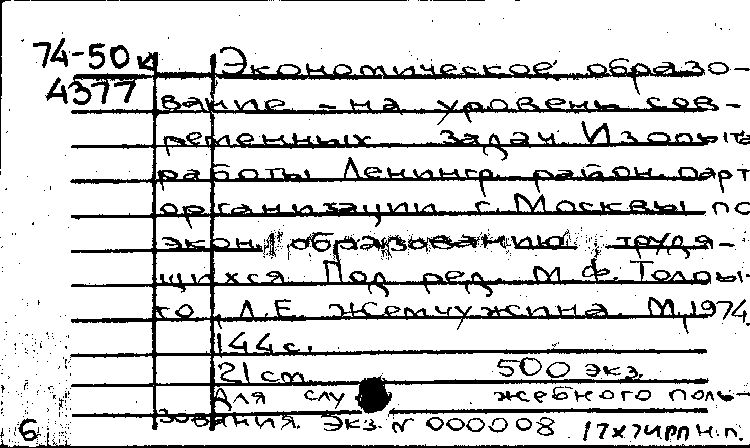 74-50к Экономическое образо-
4377 вание - на уровень сов-
ременных задач. Из опыта
работы Ленингр. район. парт
организации г. Москвы по
экон. образованию трудя-
щихся. Под ред. М.Ф.
то, Л.Е. Жемчужина. М, 1974.
144 с.
21 см 500 экз.
Для слу жебного поль-
зования. Экз. N 000008
6